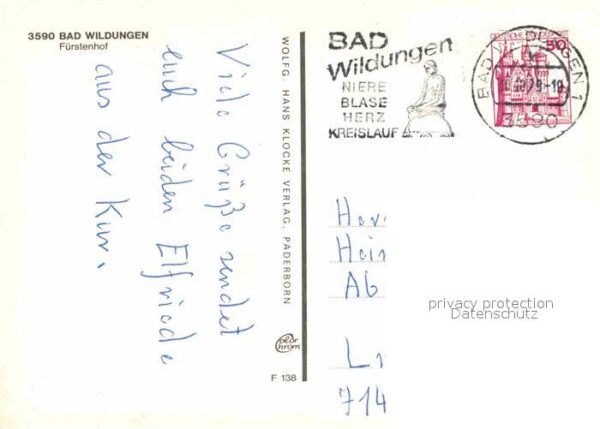 3590 BAD WILDUNGEN
Fürstenhof
Viele Grüße sendet
euch beiden Elfriede
aus der Kur.
WOLFG. HANS KLOCKE VERLAG, PADERBORN
F 138
BAD
Wildungen
NIERE
BLASE
HERZ
KREISLAUF
BAD WILDUNGEN 1
3590
50
Her
Hein
Ab
L
714
privacy protection
Datenschutz